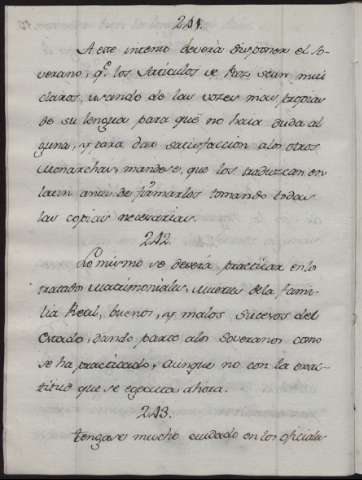 241.
A este intento deveria disponer el So-
verano, qe. los Articulos de Paz, sean mui
claros, usando de las vozes mas propias
de su lengua para que no haia duda al
guna, y para dar satisfaccion a los otros
Monarchas, mandese, que los traduzcan en
latin antes de firmarlos tomando todas
las copias necesarias.
242.
Lo mismo se deveria practicar en los
tratados Matrimoniales, Muertes de la fami-
lia Real, buenos, y malos sucesos del
Estado, dando parte a los Soveranos como
se ha practicado, aunque no con la exac-
titud que se ejecuta ahora.
243.
Tengase mucho cuidado en los oficiales